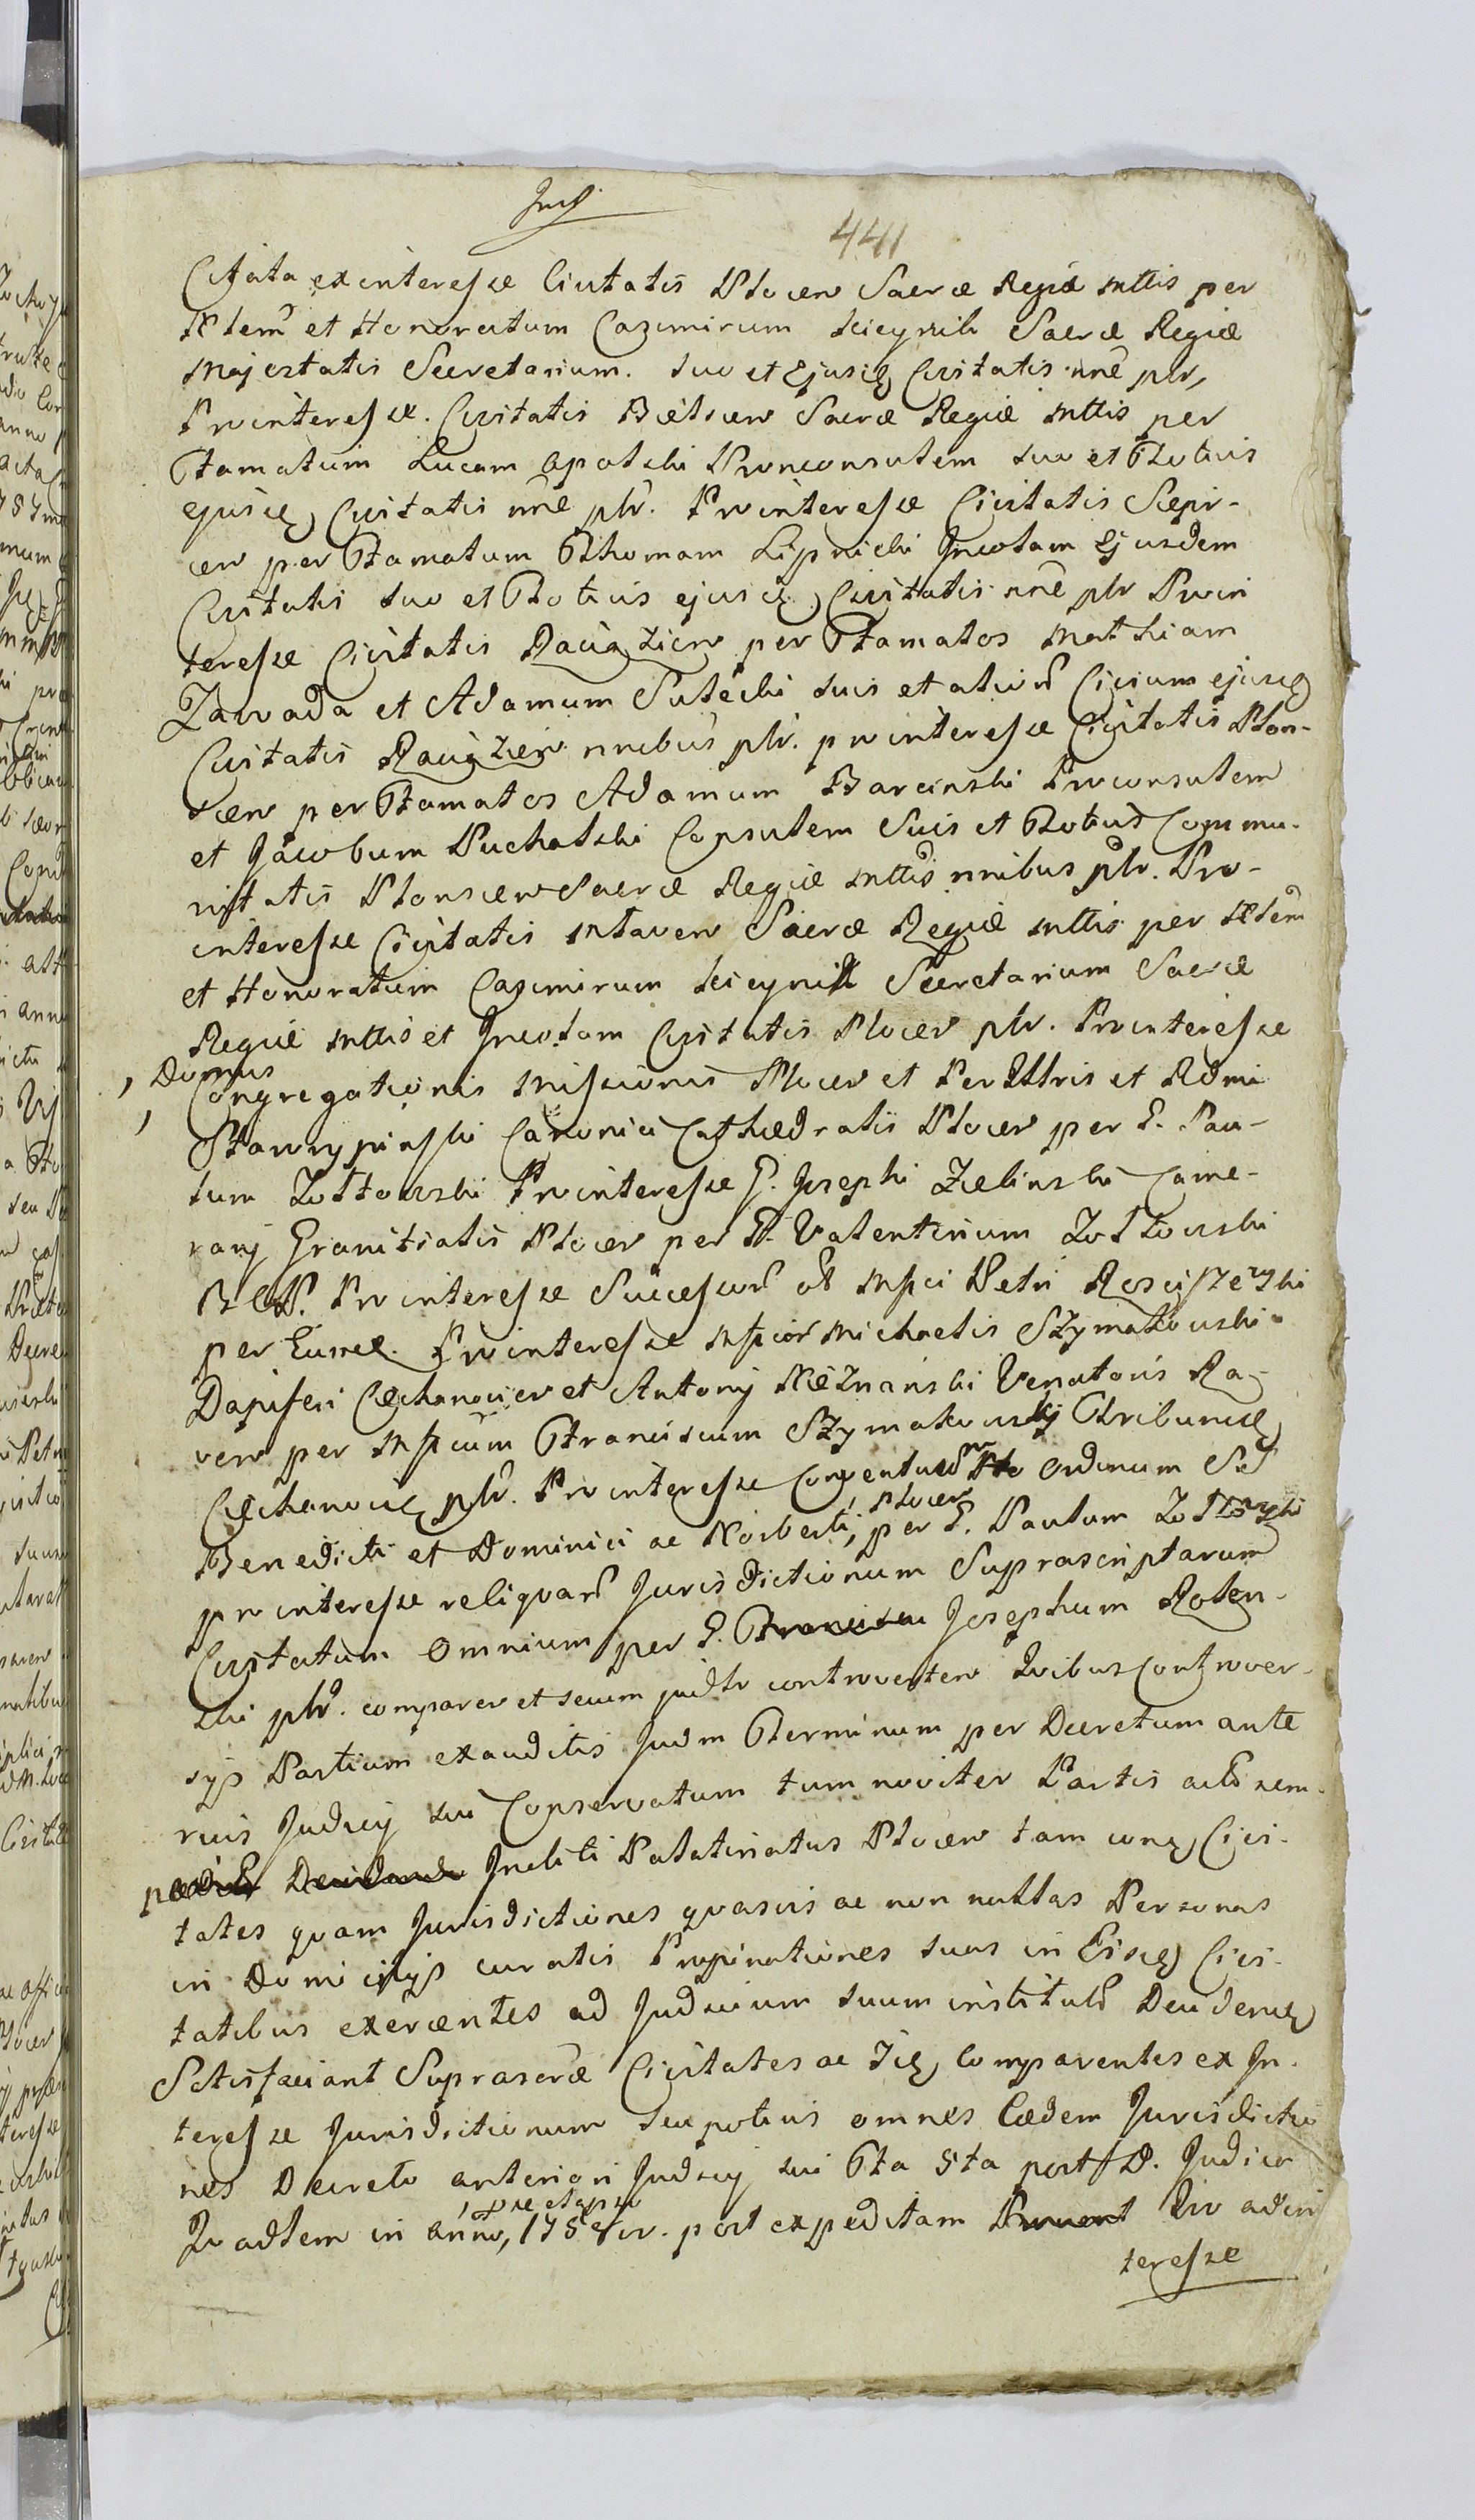 Jud
441
Citata ex interesse Civitatis Plocen Sacræ Regiæ Mttis per
Nlem et Honoratum Cazimirum Sacræ Regiæ
Majestatis Secretarium. suo et Ejusdq Civitatis nne plr,
Prointeresse. Civitatis Bielscen Sacræ Regiæ Mttis per
Famatum Lucam Opalski Pronconsulem suo et Totius
ejusdq Civitatis nne plr. Prointeresse Civitatis Siepr-
cen per Famatum Thomam Lipnicki Incolam Ejusdem
Civitatis suo et Totius ejusdq Civitatis nne plr Proin
teresse Civitatis Raciązien per Famatos Mathiam
Zawada et Adamum Sutecki suis et aliord Civium ejusdq
Civitatis Raciązien nnibus plr. prointeresse Civitatis Plon-
scen per Famatos Adamum Barcinski Proconsulem
et Jacobum Puchalski Consulem Suis et Totius Commu-
nitatis Plonscen Sacræ Regiæ Mttis nnibus plr. Pro-
interesse Civitatis Mlaven Sacræ Regiæ Mttis per Nlem
et Honoratum Cazimirum Secretarium Sacræ
Regiæ Mttis et Incolam Civitatis Plocen plr. Prointeresse
, Domus
Congregationis Missionis Plocen et Per Illtris et Rdmi
Canonici Cathedralis Plocen per G. Pau-
lum Zołtowski Prointeresse G. Josephi Zielinski Came-
rarij Granitialis Plocen per G. Valentinum Zołtowski
BCP. Prointeresse Successord ol Mfici Petri Rosciszewski
per Eundq. Prointeresse Mficor Michaelis Szymakowski
Dapiferi Ciechanovien et Antonij Nieznański Venatoris Ra-
ven per Mficum Franciscum Szymakowskij Tribunidq
Ciechanovidq plr. Prointeresse Conventuum Ordinum SS
Benedicti et Dominici ac Norberti, Plocen per G. Paulum Zołtowski
prointeresse reliquard Jurisdictionum Suprascriptarum
Civitatum Omnium per G. Josephum Rolen-
ski plr. comparen et secum judlr controverten Quibus controver-
sijs Partium exauditis Judm Terminum per Decretum ante
rius Judicij sui Conservatum tum noviter Partis
Incliti Palatinatus Plocen tam Civi-
tates quam Jurisdictiones quasvis ac non nullas Personas
in Domicilijs curatis Propinationes suas in Eisdq Civi-
tatibus exercentes ad Judicium suum
Satisfaciant Suprascræ Civitates ac Jidq Comparentes ex In-
teresse Jurisdictionum seu potius omnes Eædem Jurisdictio
nes Decreto anteriori Judicij sui Fta 5ta post D. Judicr
Quadlem in anno, 175 post expeditam Quo adin
teresse